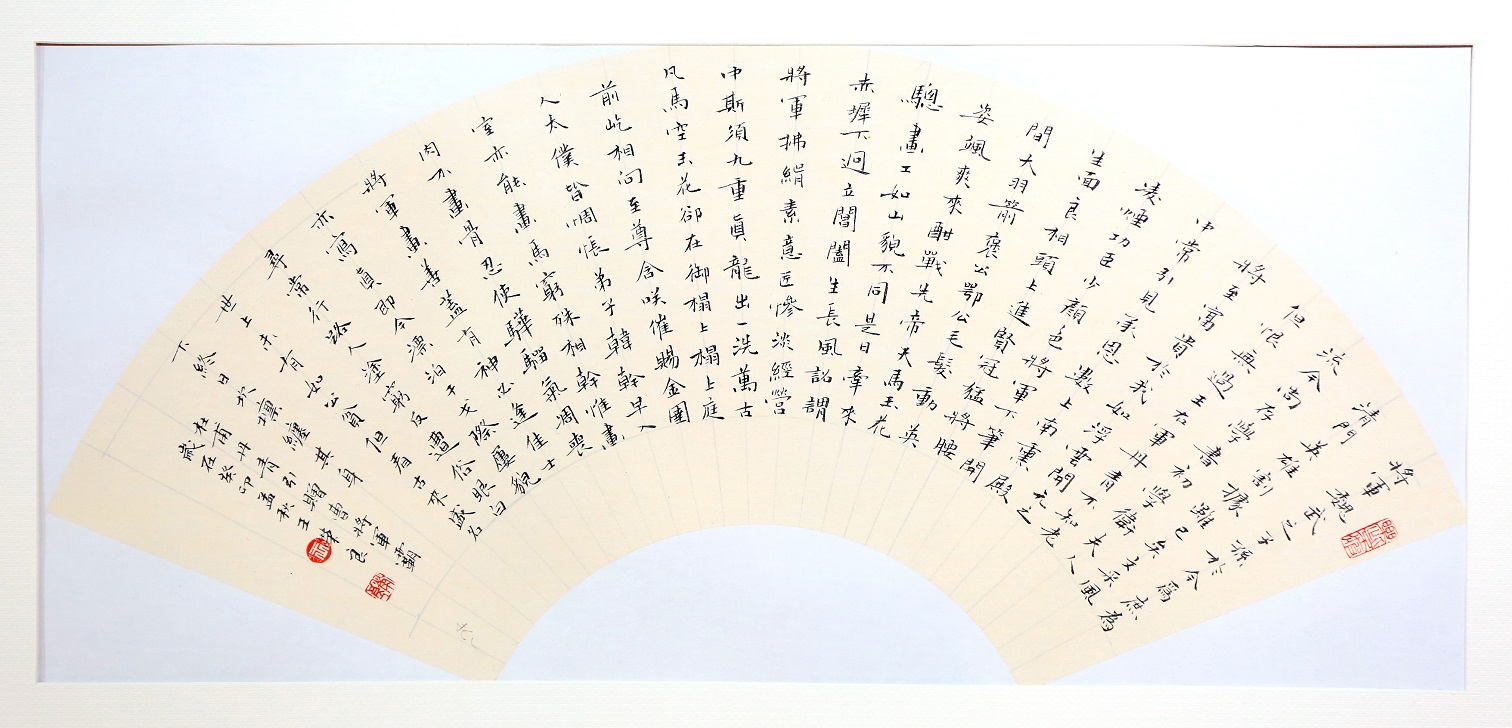 將軍魏武之子孫於今爲庶為
清門英雄割據雖已矣文采風
流今尚存學書初學衛夫人
但恨無過王右軍丹青不知老
將至富貴於我如浮雲開元之
中常引見承恩數上南熏殿
淩煙功臣少顏色將軍下筆開
生面良相頭上進賢冠猛將腰
間大羽箭褒公鄂公毛髮動英
姿颯爽來酣戰先帝天馬玉花
驄畫工如山貌不同是日牽來
赤墀下迥立閶闔生長風詔謂
將軍拂絹素意匠慘淡經營
中斯須九重眞龍出一洗萬古
凡馬空玉花卻在御榻上榻上庭
前屹相向至尊含咲催賜金圉
人太僕皆惆悵弟子韓幹早入
室亦能畫馬窮殊相幹惟畫
肉不畫骨忍使驊騮氣凋喪
將軍畫善蓋有神必逢佳士
亦寫眞即今漂泊干戈際屢貌
尋常行路人塗窮反遭俗眼白
世上未有如公貧但看古來盛名
下終日坎壈纏其身
杜甫丹青引贈曹將軍霸
歲在癸卯孟秋王榮良